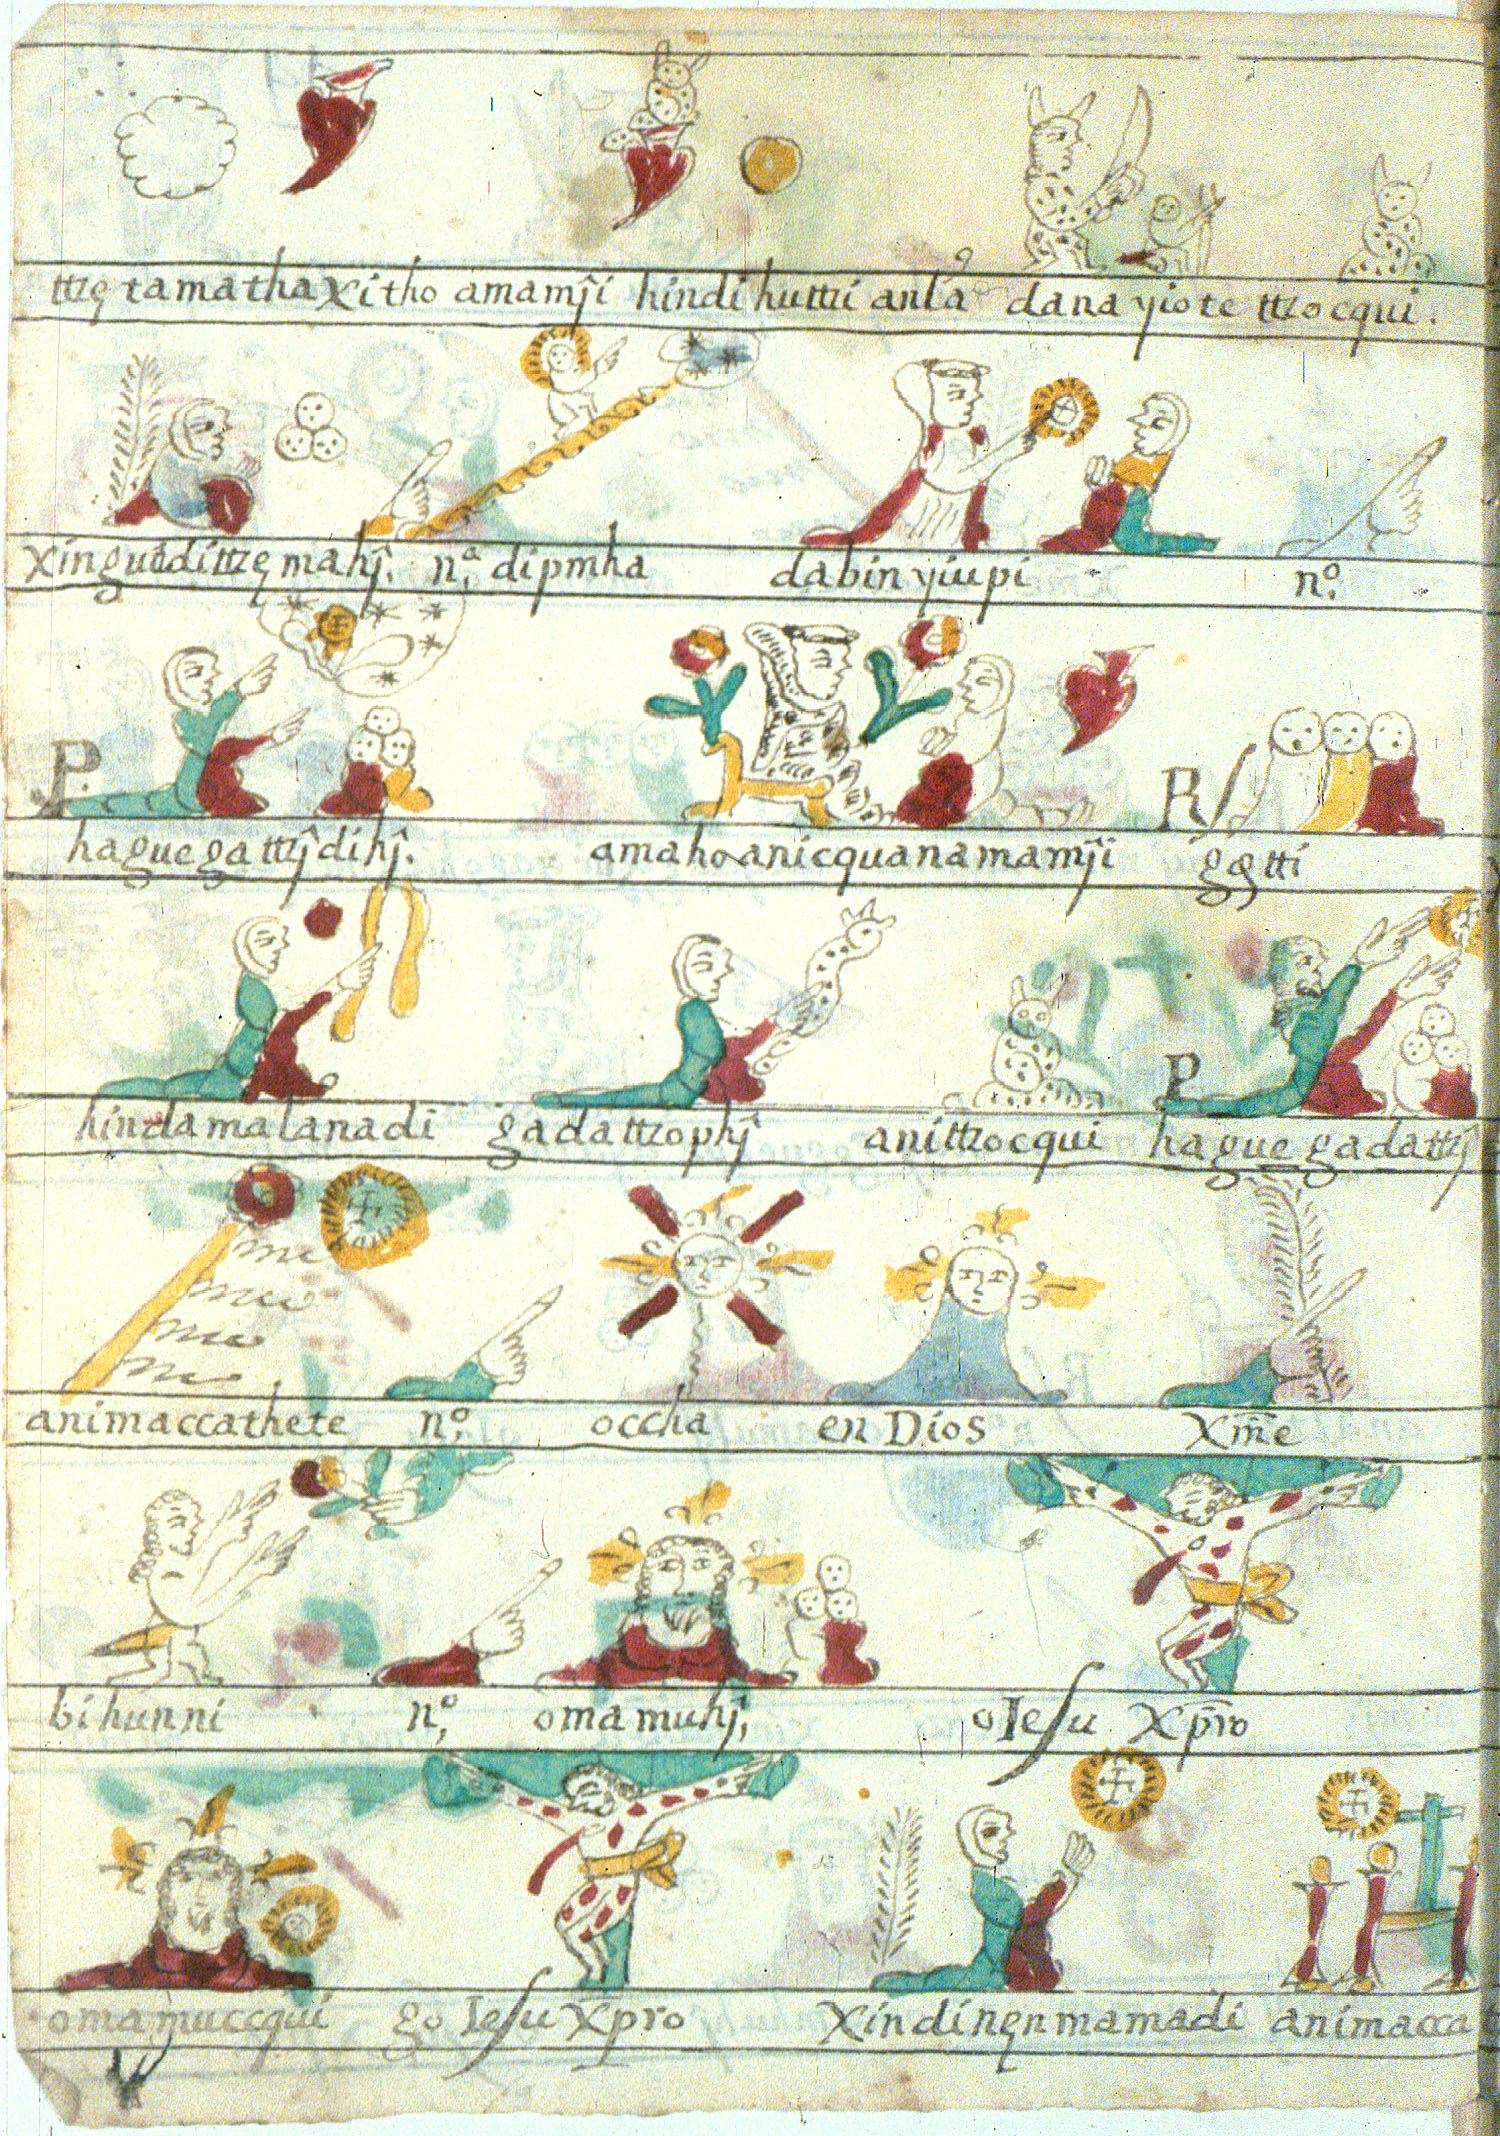 ttzȩ tamatha xitho amamȷ̂i hindi huttzi anła dana yiote ttzocqui.
xinguêdittzȩ mahȷ̂. nª, dipmha dabin yiupi nº.
P.
R/
hague gattzȷ̂ dihȷ̂. amahoanicquanamamȷ̂i gȩtti
P
hindamałanadi gadattzophȷ̂ anittzocqui hague gadattzȷ̂
me
mee
me
me
animaccathete nº, occha en Dios Xm̃e
bi hunni nº, omamuhȷ̂, o Iesu Xp̃ro
omamuccqui go Iesu Xp̃ro Xindinȩn mamadi animacca